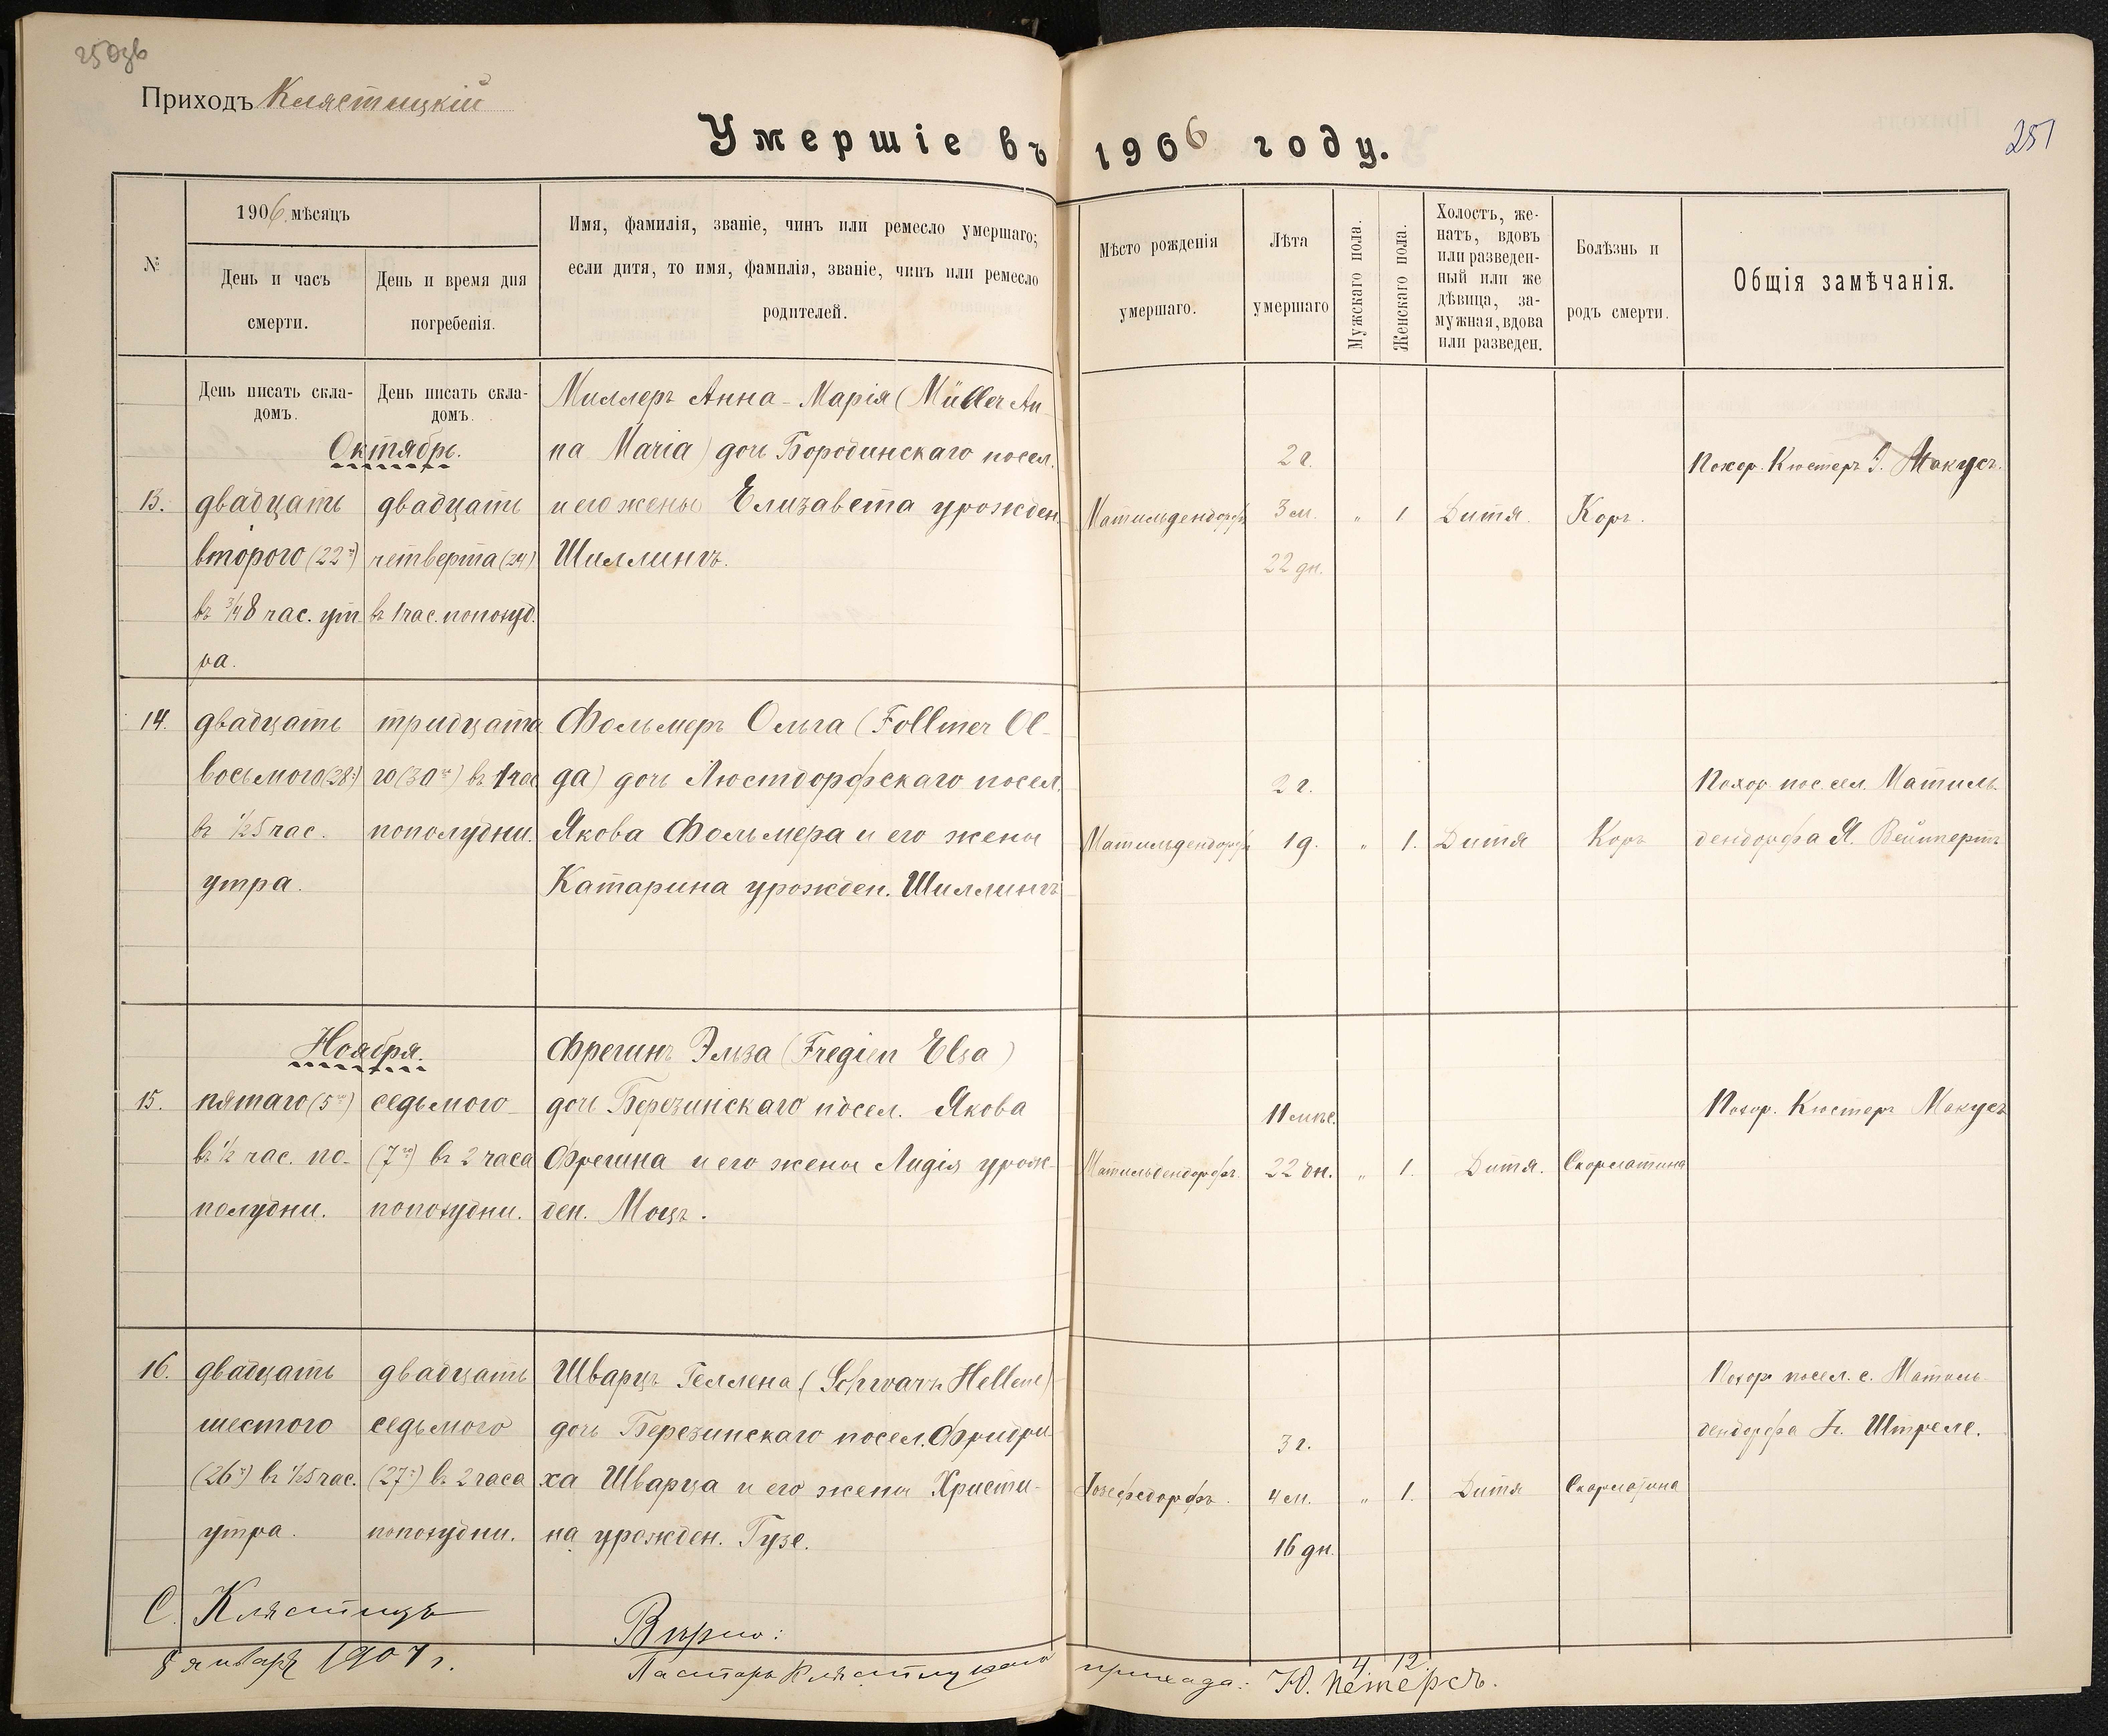 250об
Приходъ Клястицкій
251
Умершіе въ 1906 году.
№
1906 мѣсяцъ
День и часъ
смерти.
День и время дня
погребенія.
Имя, фамилія, званіе, чинъ или ремесло умершаго;
если дитя, то имя, фамилія, званіе, чинъ или ремесло
родителей.
Мѣсто рожденія
умершаго.
Лѣта
умершаго
Мужскаго пола.
Женскаго пола.
Холостъ, же-
натъ, вдовъ
или разведен-
ный или же
дѣвица, за-
мужная, вдова
или разведен.
Болѣзнь и
родъ смерти.
Общія замѣчанія.
День писать скла-
домъ.
День писать скла-
домъ.
Октябрь.
13.
двадцать
второго (22го)
въ 3/4 8 час. ут
ра.
двадцать
четверта (24)
въ 1 час. пополуд.
Миллеръ Анна-Марія (Müller An-
na Maria) дочь Бородинскаго посел.
и его жены Елизавета урожден.
Шиллингъ.
Матильдендорфъ
2 г.
3 м.
22 дн.
„
1
Дитя.
Корь.
Похор. Кюстеръ Макусъ.
14.
двадцать
восьмого (28)
въ 1/2 5 час.
утра.
тридцата
го (30го) въ 1 час
пополудни.
Фольмеръ Ольга (Follmer Ol-
да) дочь Люстдорфскаго посел.
Якова Фольмера и его жены
Катарина урожден. Шиллингъ
Матильдендорфъ
2 г.
1 д.
„
1.
Дитя
Корь
Похор. пос. сел. Матиль-
дендорфа Я. Вейппертъ
Ноября.
15.
пятаго (5го)
въ 1/2 час. по-
полудни.
седьмого
(7го) въ 2 часа
пополудни.
Фрегинъ Эльза (Fregien Elsa)
дочь Березинскаго посел. Якова
Фрегина и его жены Лидія урож-
ден. Моцъ.
Матильдендорфъ.
11 мѣс.
22 дн.
„
1.
Дитя.
Скорлатина
Похор. Кюстеръ Макусъ
16.
двадцать
шестого
(26го) въ 1/2 5 час.
утра.
двадцать
седьмого
(27го) въ 2 часа
пополудни.
Шварцъ Геллена (Schwarz Hellene)
дочь Березинскаго посел. Фридри
ха Шварца и его жены Христи-
на урожден. Гузе.
Іозефсдорфъ.
3 г.
4 м.
16 дн.
„
1.
Дитя
Скорлатина
Похор. посел. с. Матиль-
дендорфа Штреле.
С. Клястицъ
8 января 1907 г.
Вѣрно:
Пасторъ Клястицкаго прихода: Ю. Петерсъ.
4 12